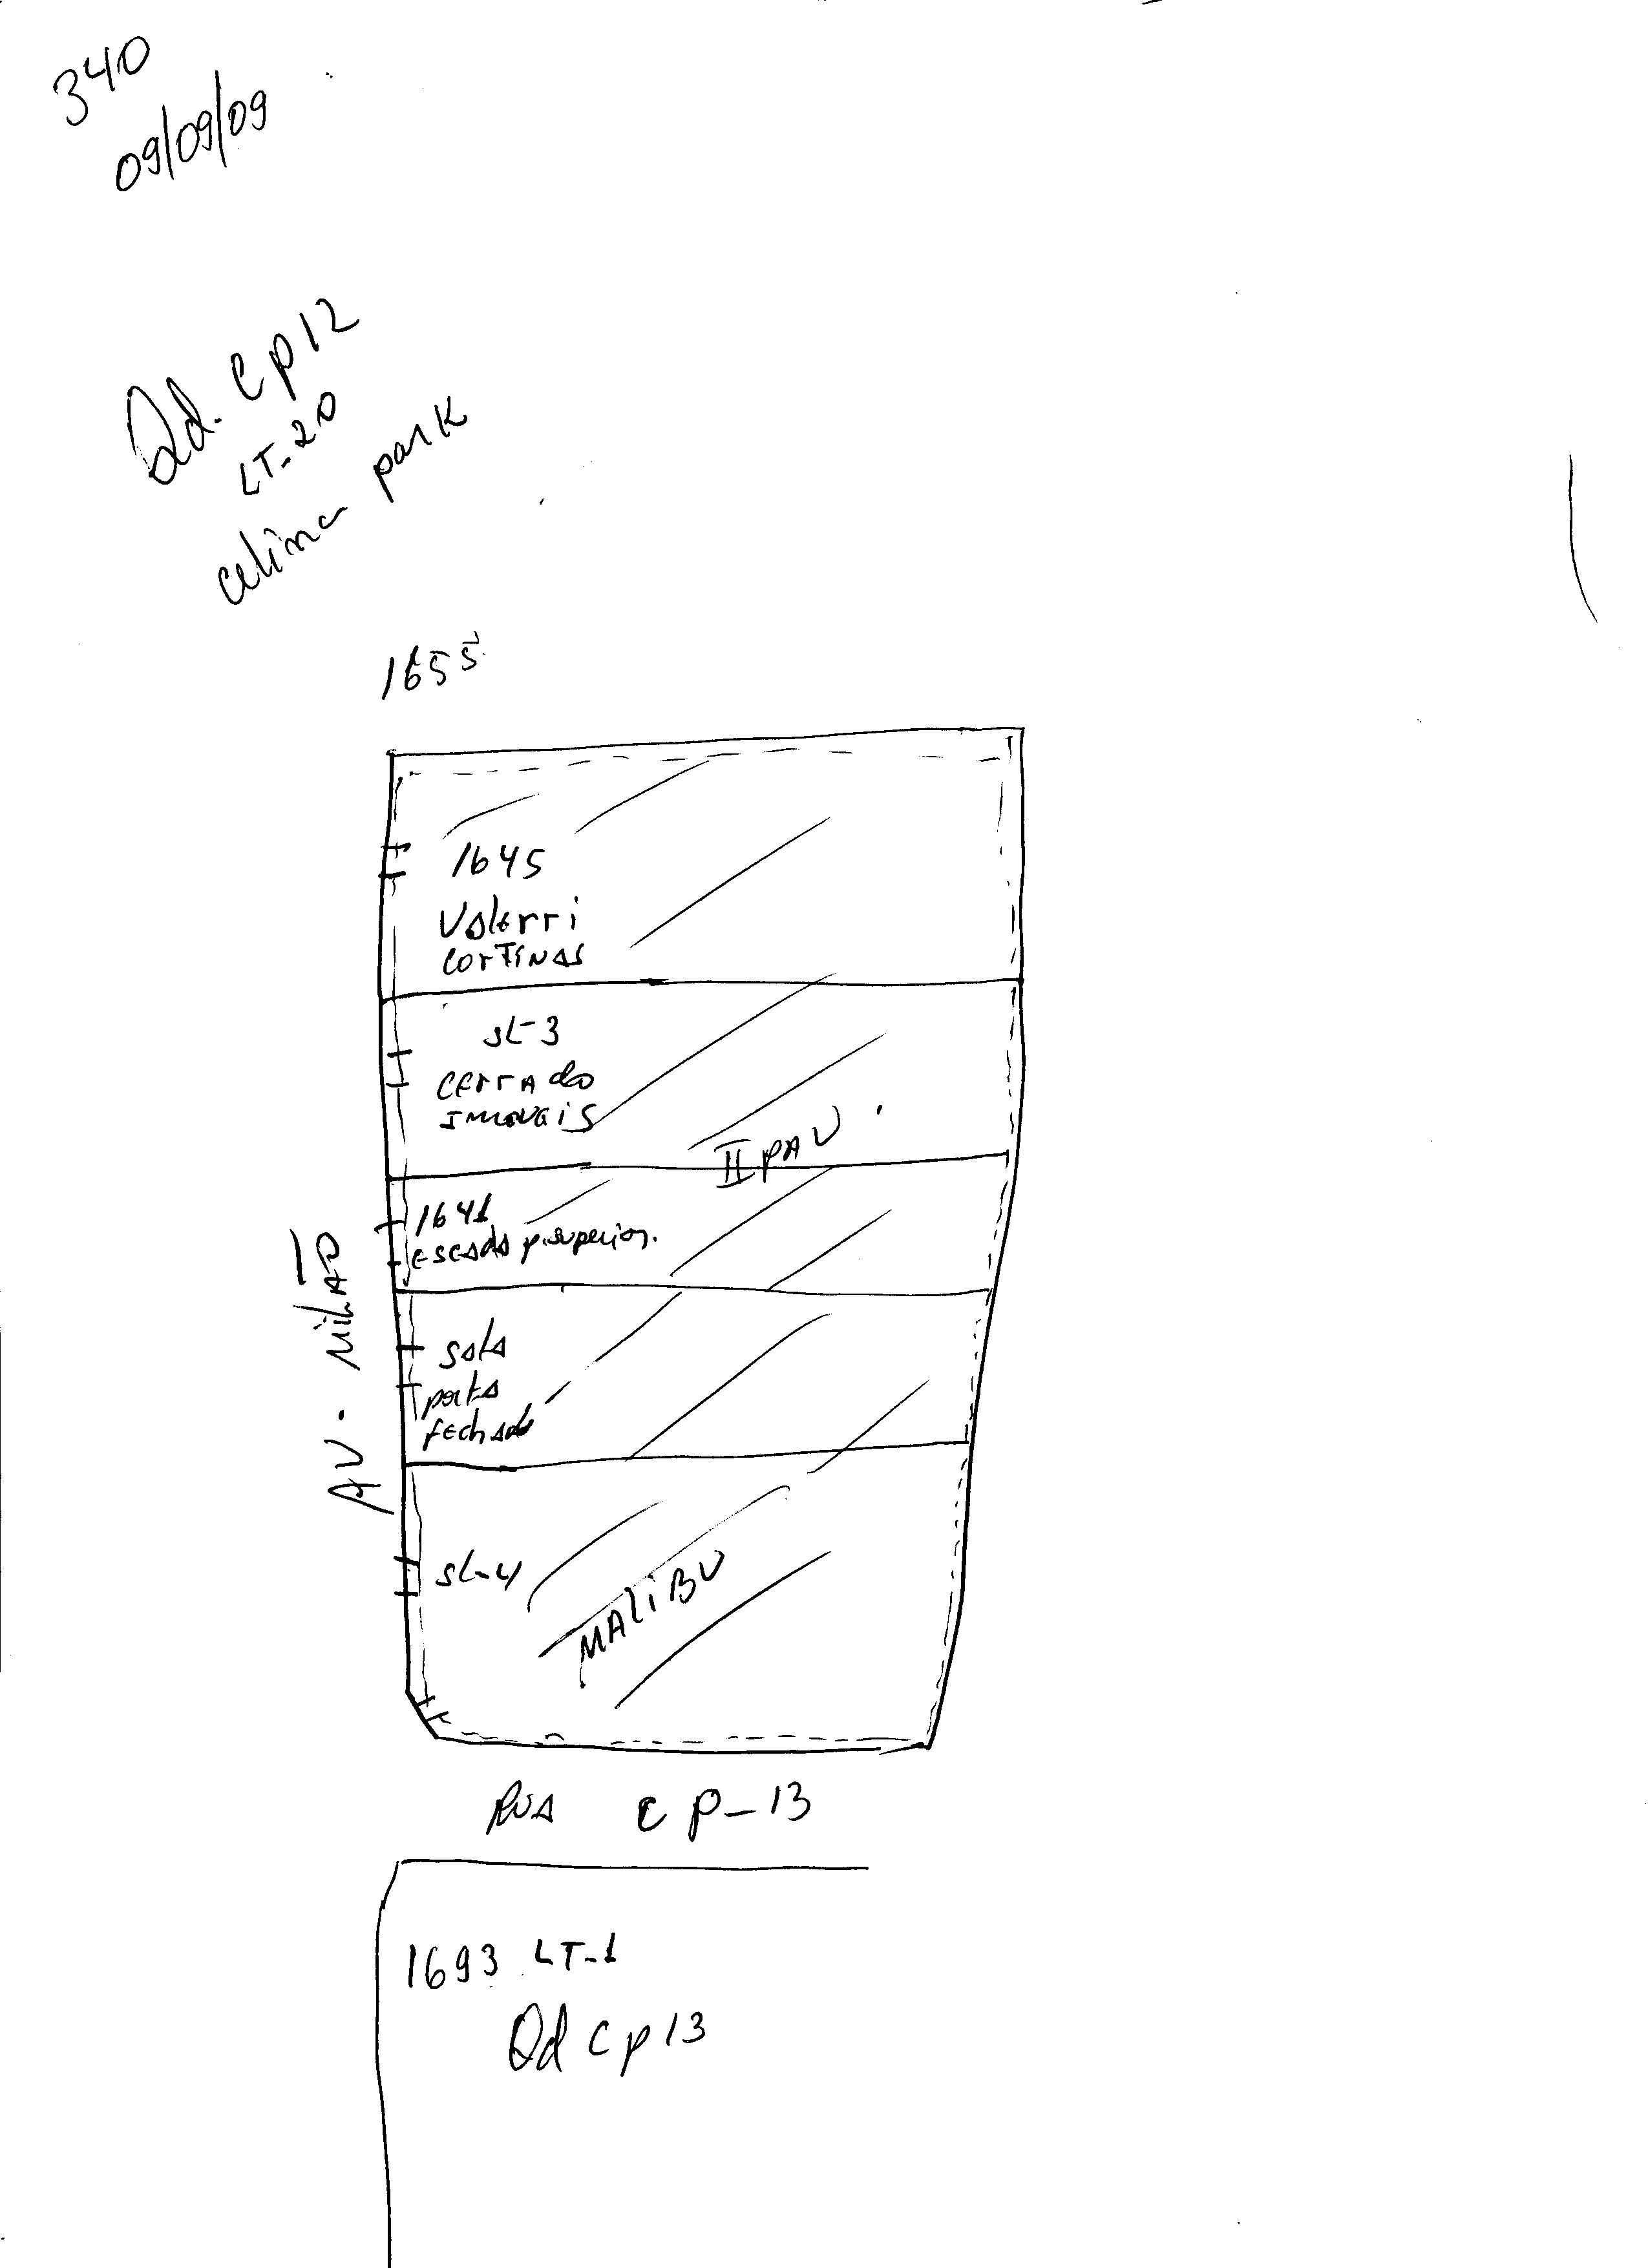 340
09/09/09
Qd. cp12
LT-20
celina park
1655
1645
Valerri
cortinas
sl-3
cerrado
Imovais
II PAV.
1641
escada p.superior.
sala
porta
fechada
AV. MILÃO
sl-4
MALIBU
RUA CP-13
1693 LT-1
Qd cp13